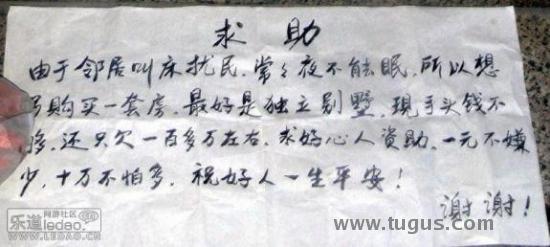 求助
由于邻居叫床扰民，常々夜不能眠，所以想
购买一套房，最好是独立别墅，现手头钱不
够，还只欠一百多万左右，求好心人资助，一元不嫌
少，十万不怕多，祝好人一生平安！
谢谢！
乐道 网游社区
ledao
WWW.LEDAO.CN
www.tugus.com